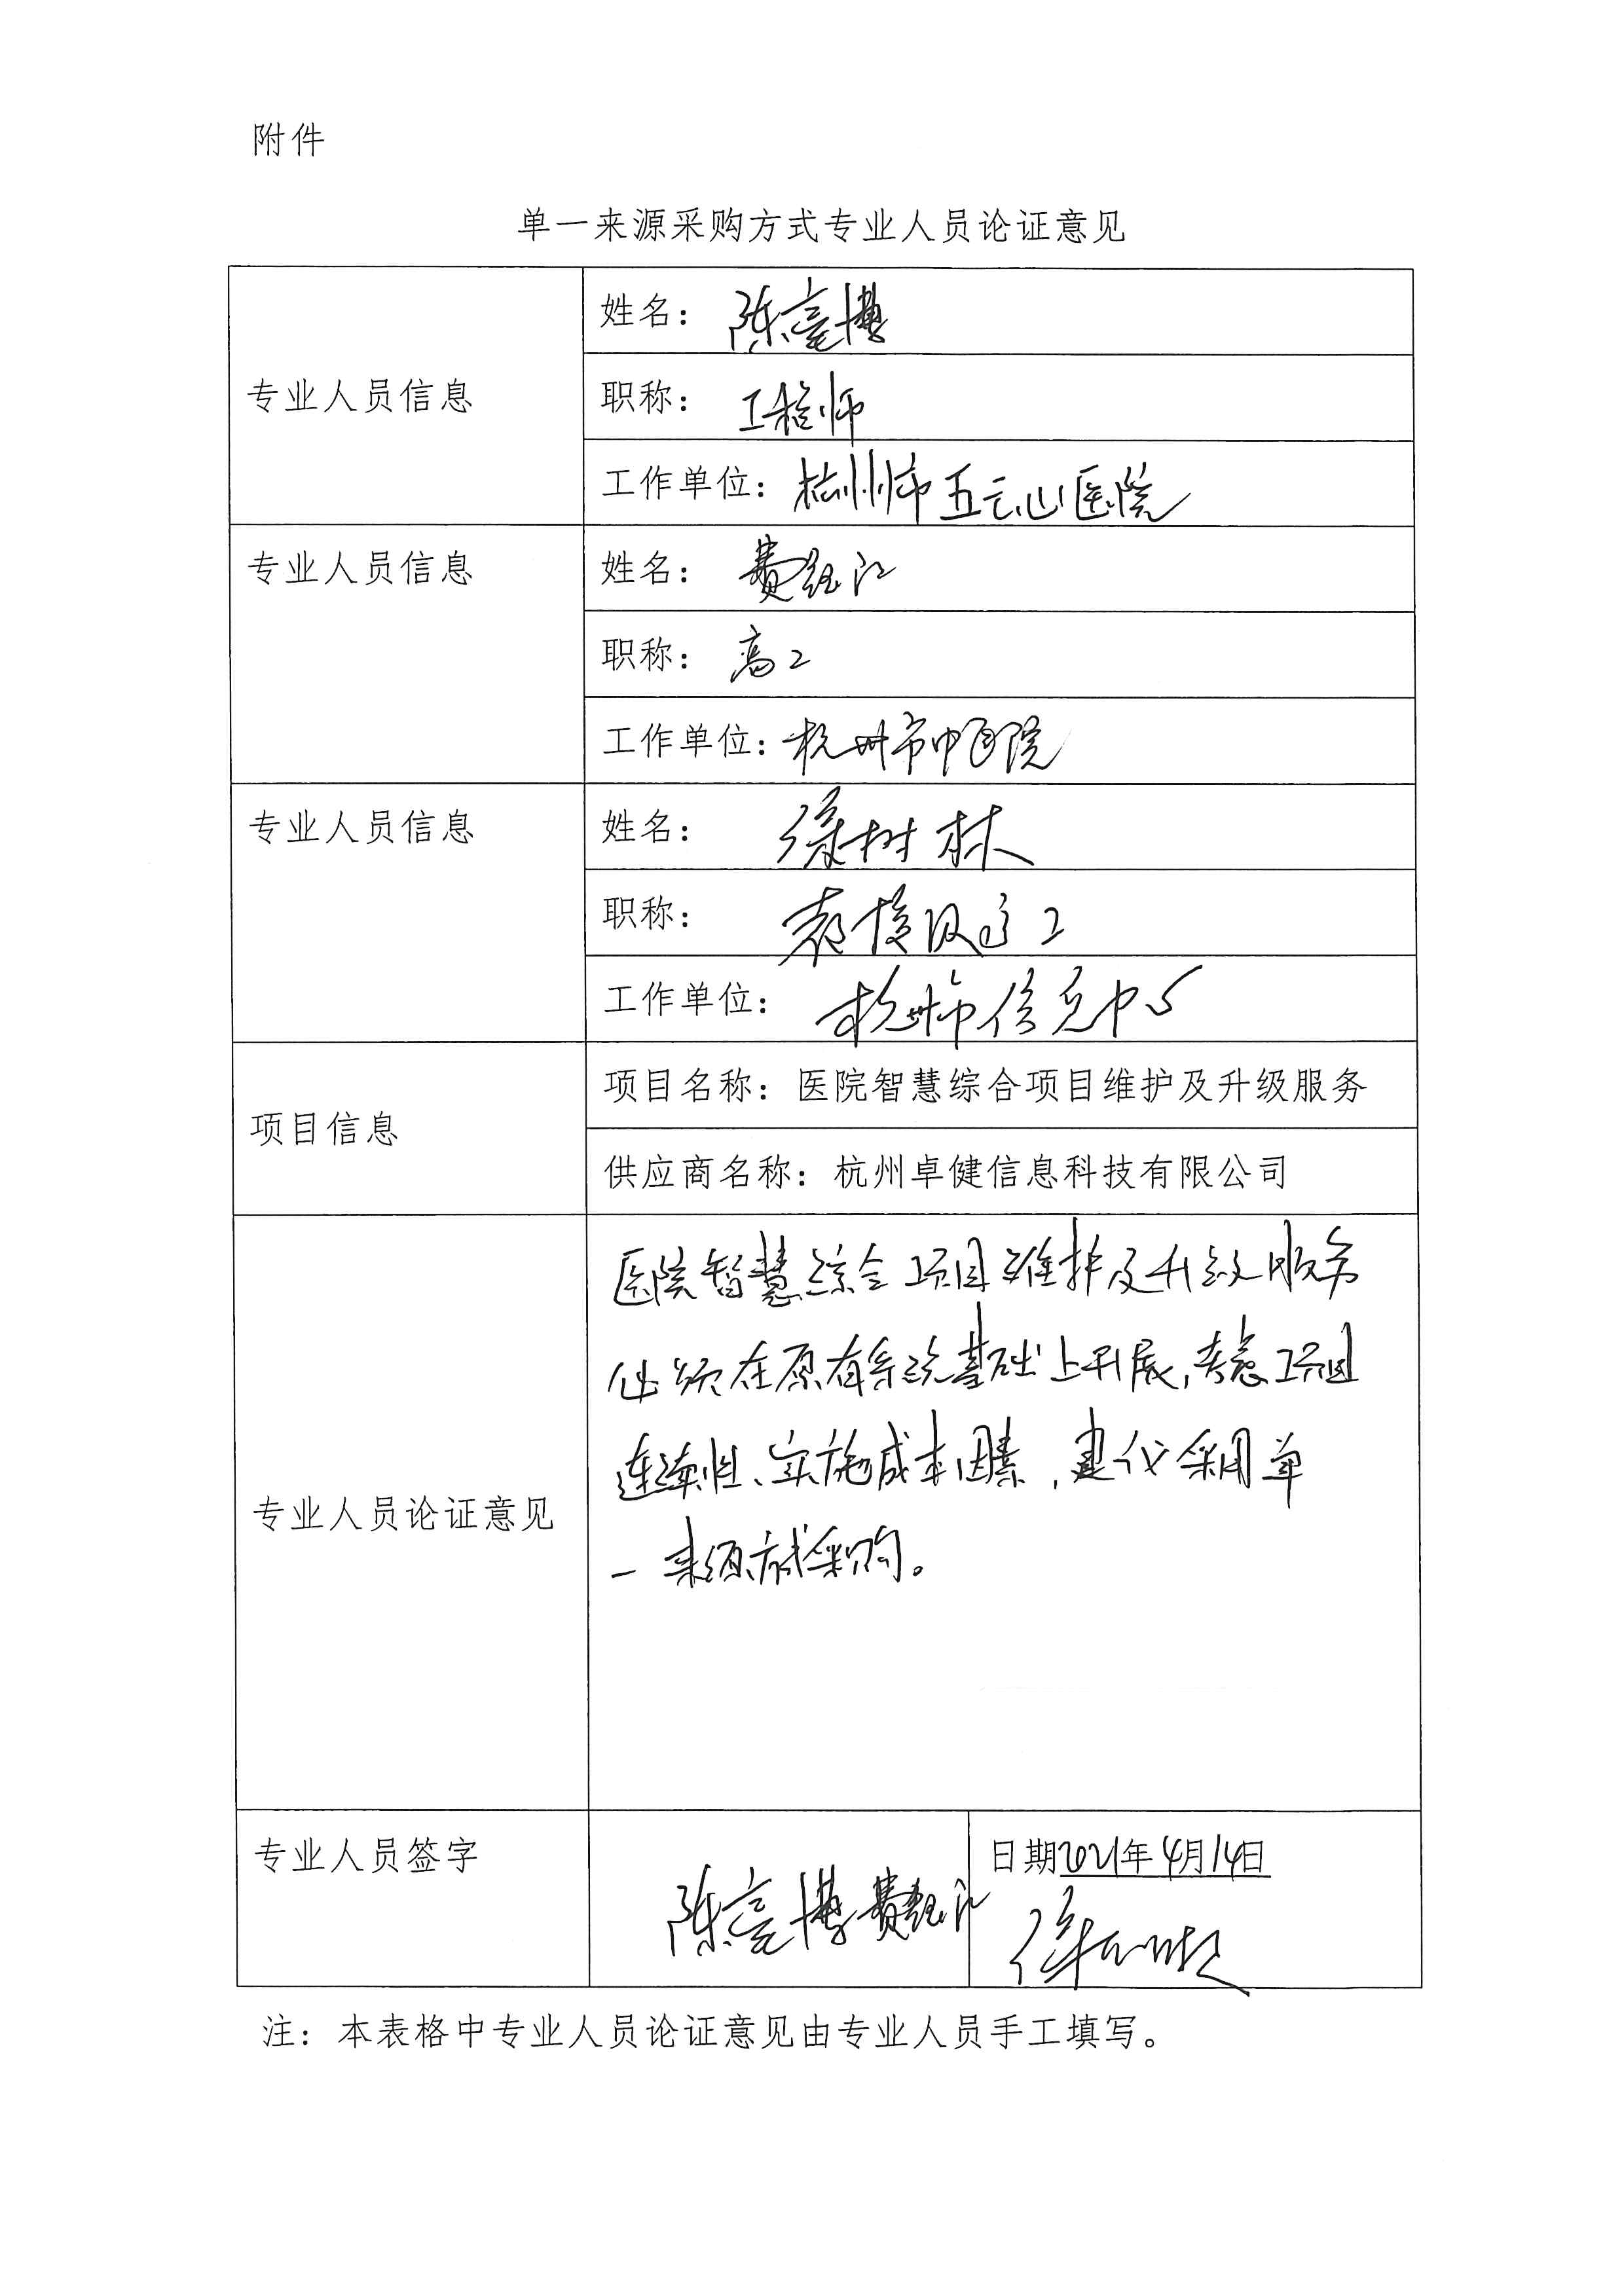 附件
单一来源采购方式专业人员论证意见
专业人员信息
姓名：陈亮博
职称：工程师
工作单位：杭州市五云山医院
专业人员信息
姓名：费经江
职称：高工
工作单位：杭州市中医院
专业人员信息
姓名：徐树林
职称：教授级高工
工作单位：杭州市信息中心
项目信息
项目名称：医院智慧综合项目维护及升级服务
供应商名称：杭州卓健信息科技有限公司
专业人员论证意见
医院智慧综合项目维护及升级服务
必须在原有系统基础上开展，考虑项目
连续性、实施成本因素，建议采用单
一来源方式采购。
专业人员签字
陈亮博 费经江
日期2021年4月14日
注：本表格中专业人员论证意见由专业人员手工填写。